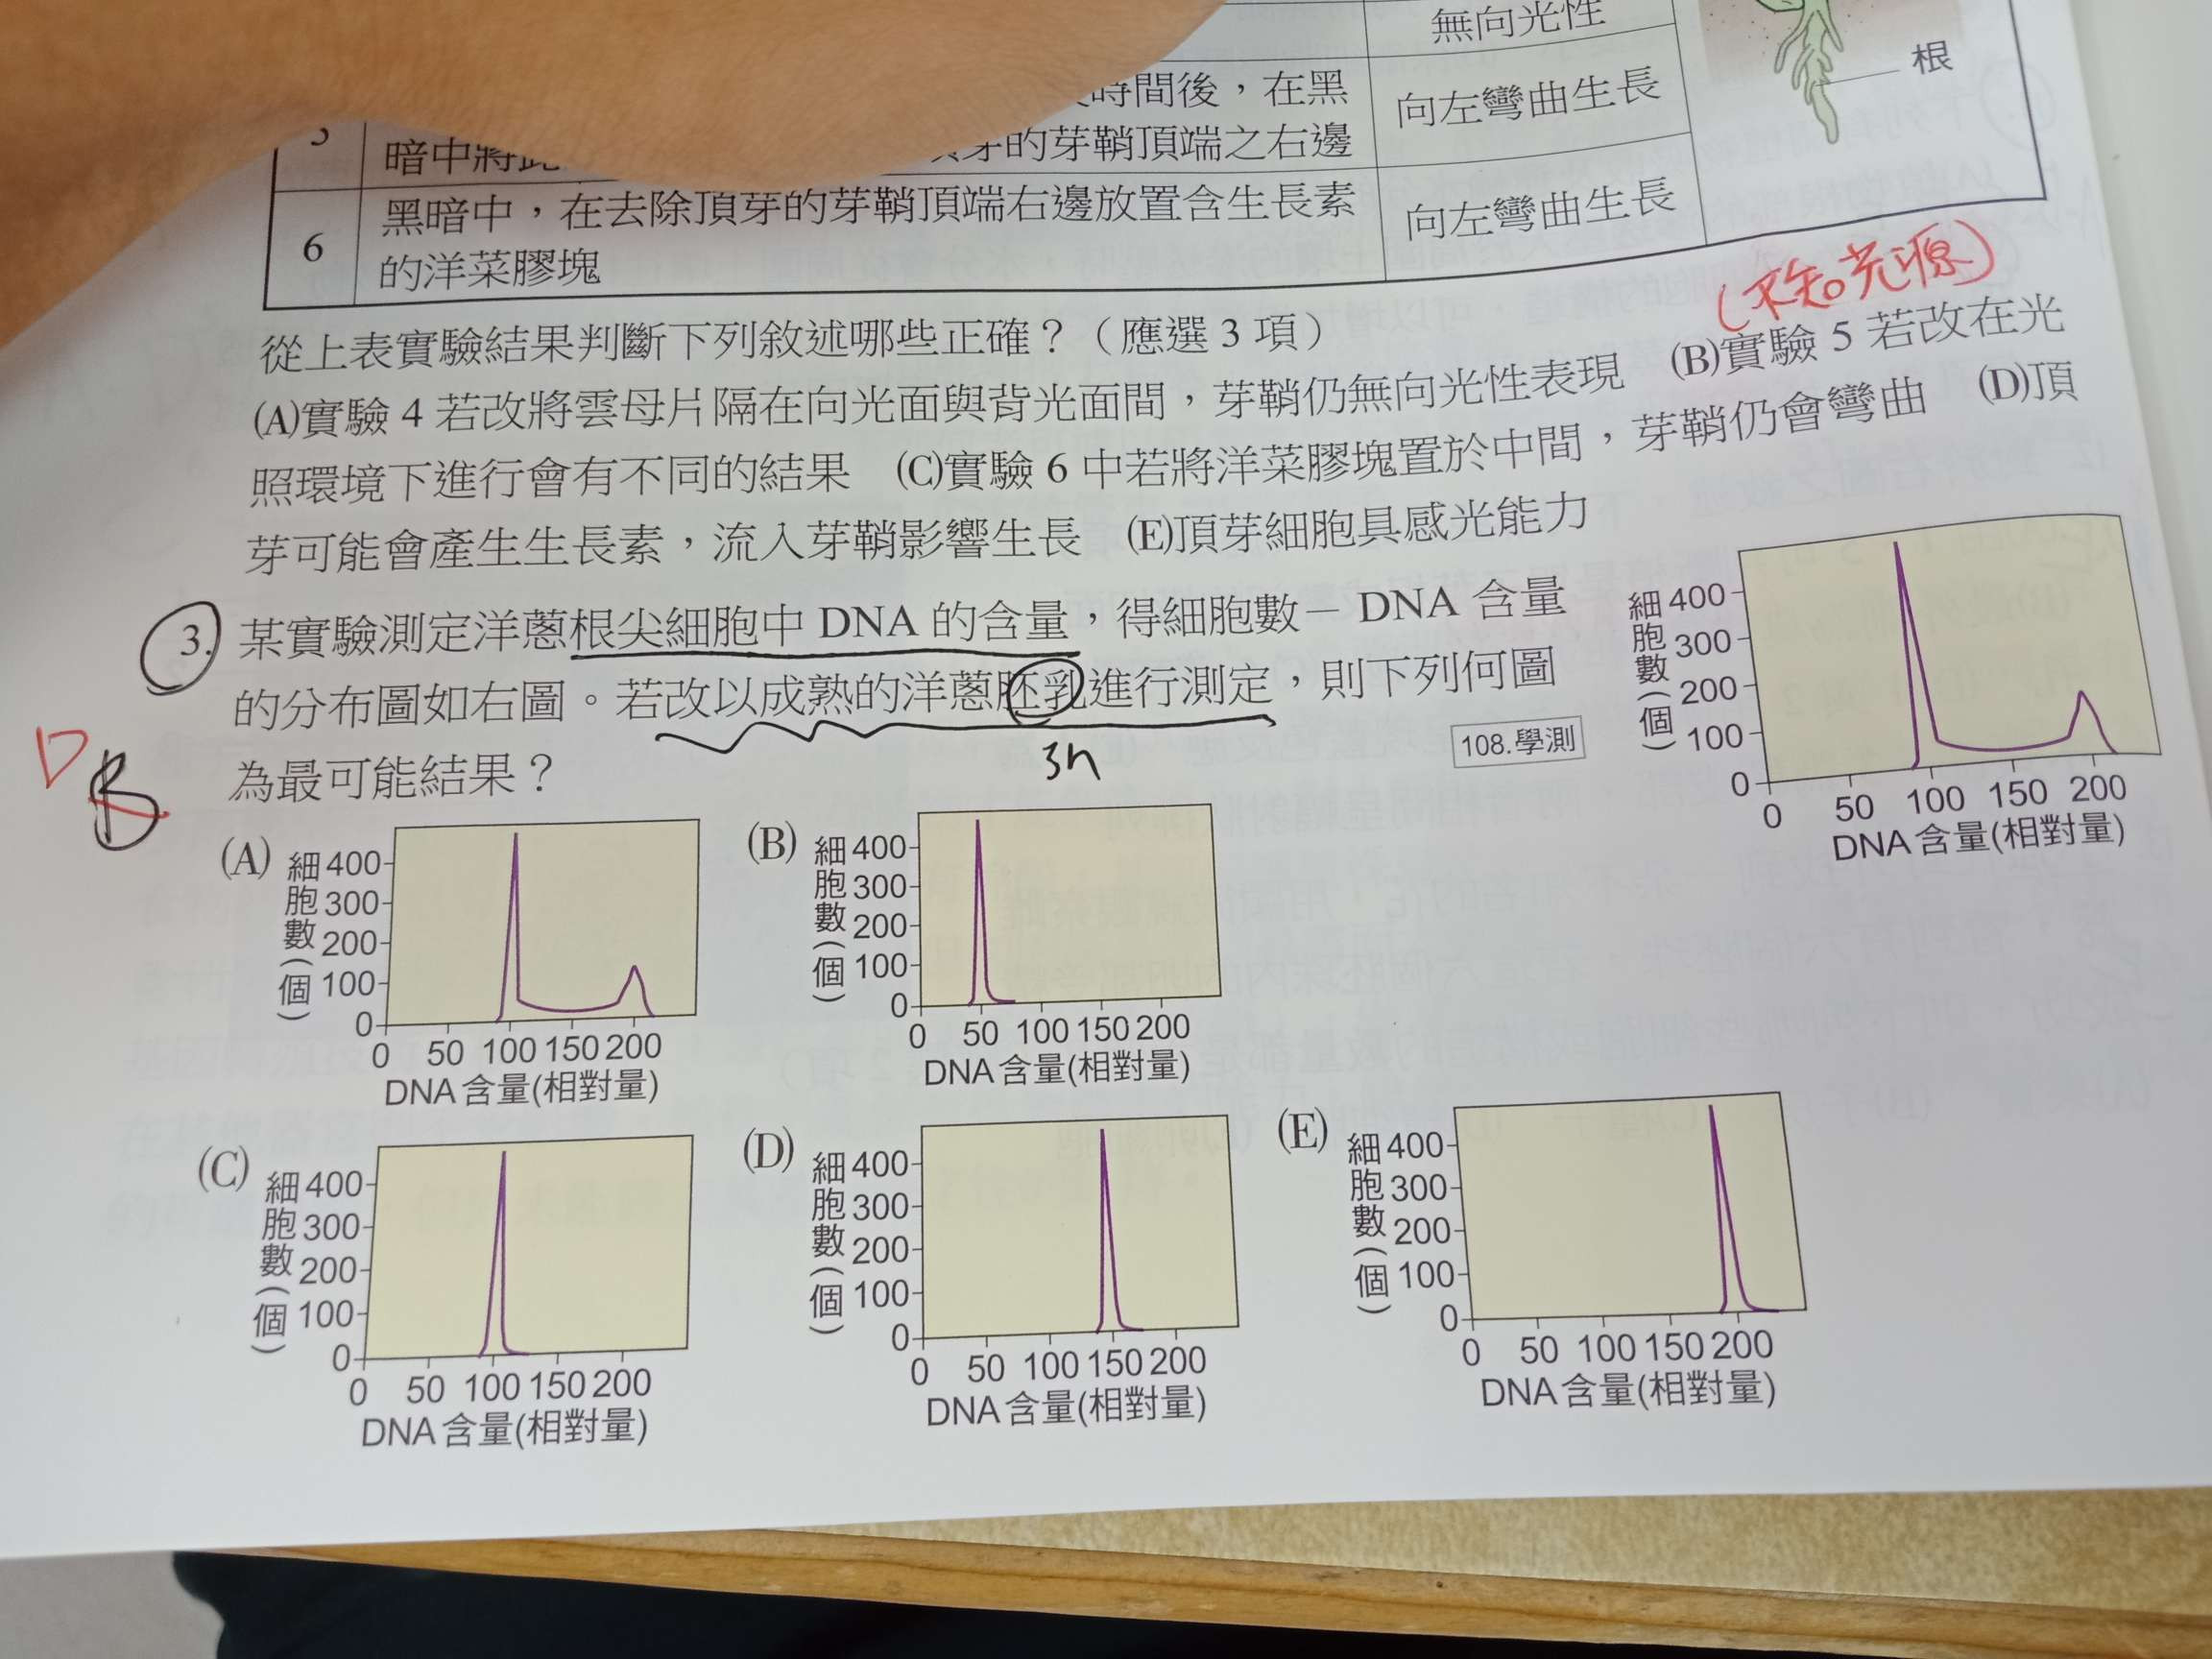 無向光性
時間後，在黑
暗中將此
芽的芽鞘頂端之右邊
向左彎曲生長
根
6
黑暗中，在去除頂芽的芽鞘頂端右邊放置含生長素
的洋菜膠塊
向左彎曲生長
(不知光源)
從上表實驗結果判斷下列敘述哪些正確？（應選 3 項）
(A)實驗 4 若改將雲母片隔在向光面與背光面間，芽鞘仍無向光性表現 (B)實驗 5 若改在光
照環境下進行會有不同的結果 (C)實驗 6 中若將洋菜膠塊置於中間，芽鞘仍會彎曲 (D)頂
芽可能會產生生長素，流入芽鞘影響生長 (E)頂芽細胞具感光能力
3. 某實驗測定洋蔥根尖細胞中 DNA 的含量，得細胞數－DNA 含量
的分布圖如右圖。若改以成熟的洋蔥胚乳進行測定，則下列何圖
為最可能結果？
108.學測
3n
D
B
細胞數(個)
400
300
200
100
0
0 50 100 150 200
DNA 含量(相對量)
(A)
細胞數(個)
400
300
200
100
0
0 50 100 150 200
DNA 含量(相對量)
(B)
細胞數(個)
400
300
200
100
0
0 50 100 150 200
DNA 含量(相對量)
(C)
細胞數(個)
400
300
200
100
0
0 50 100 150 200
DNA 含量(相對量)
(D)
細胞數(個)
400
300
200
100
0
0 50 100 150 200
DNA 含量(相對量)
(E)
細胞數(個)
400
300
200
100
0
0 50 100 150 200
DNA 含量(相對量)